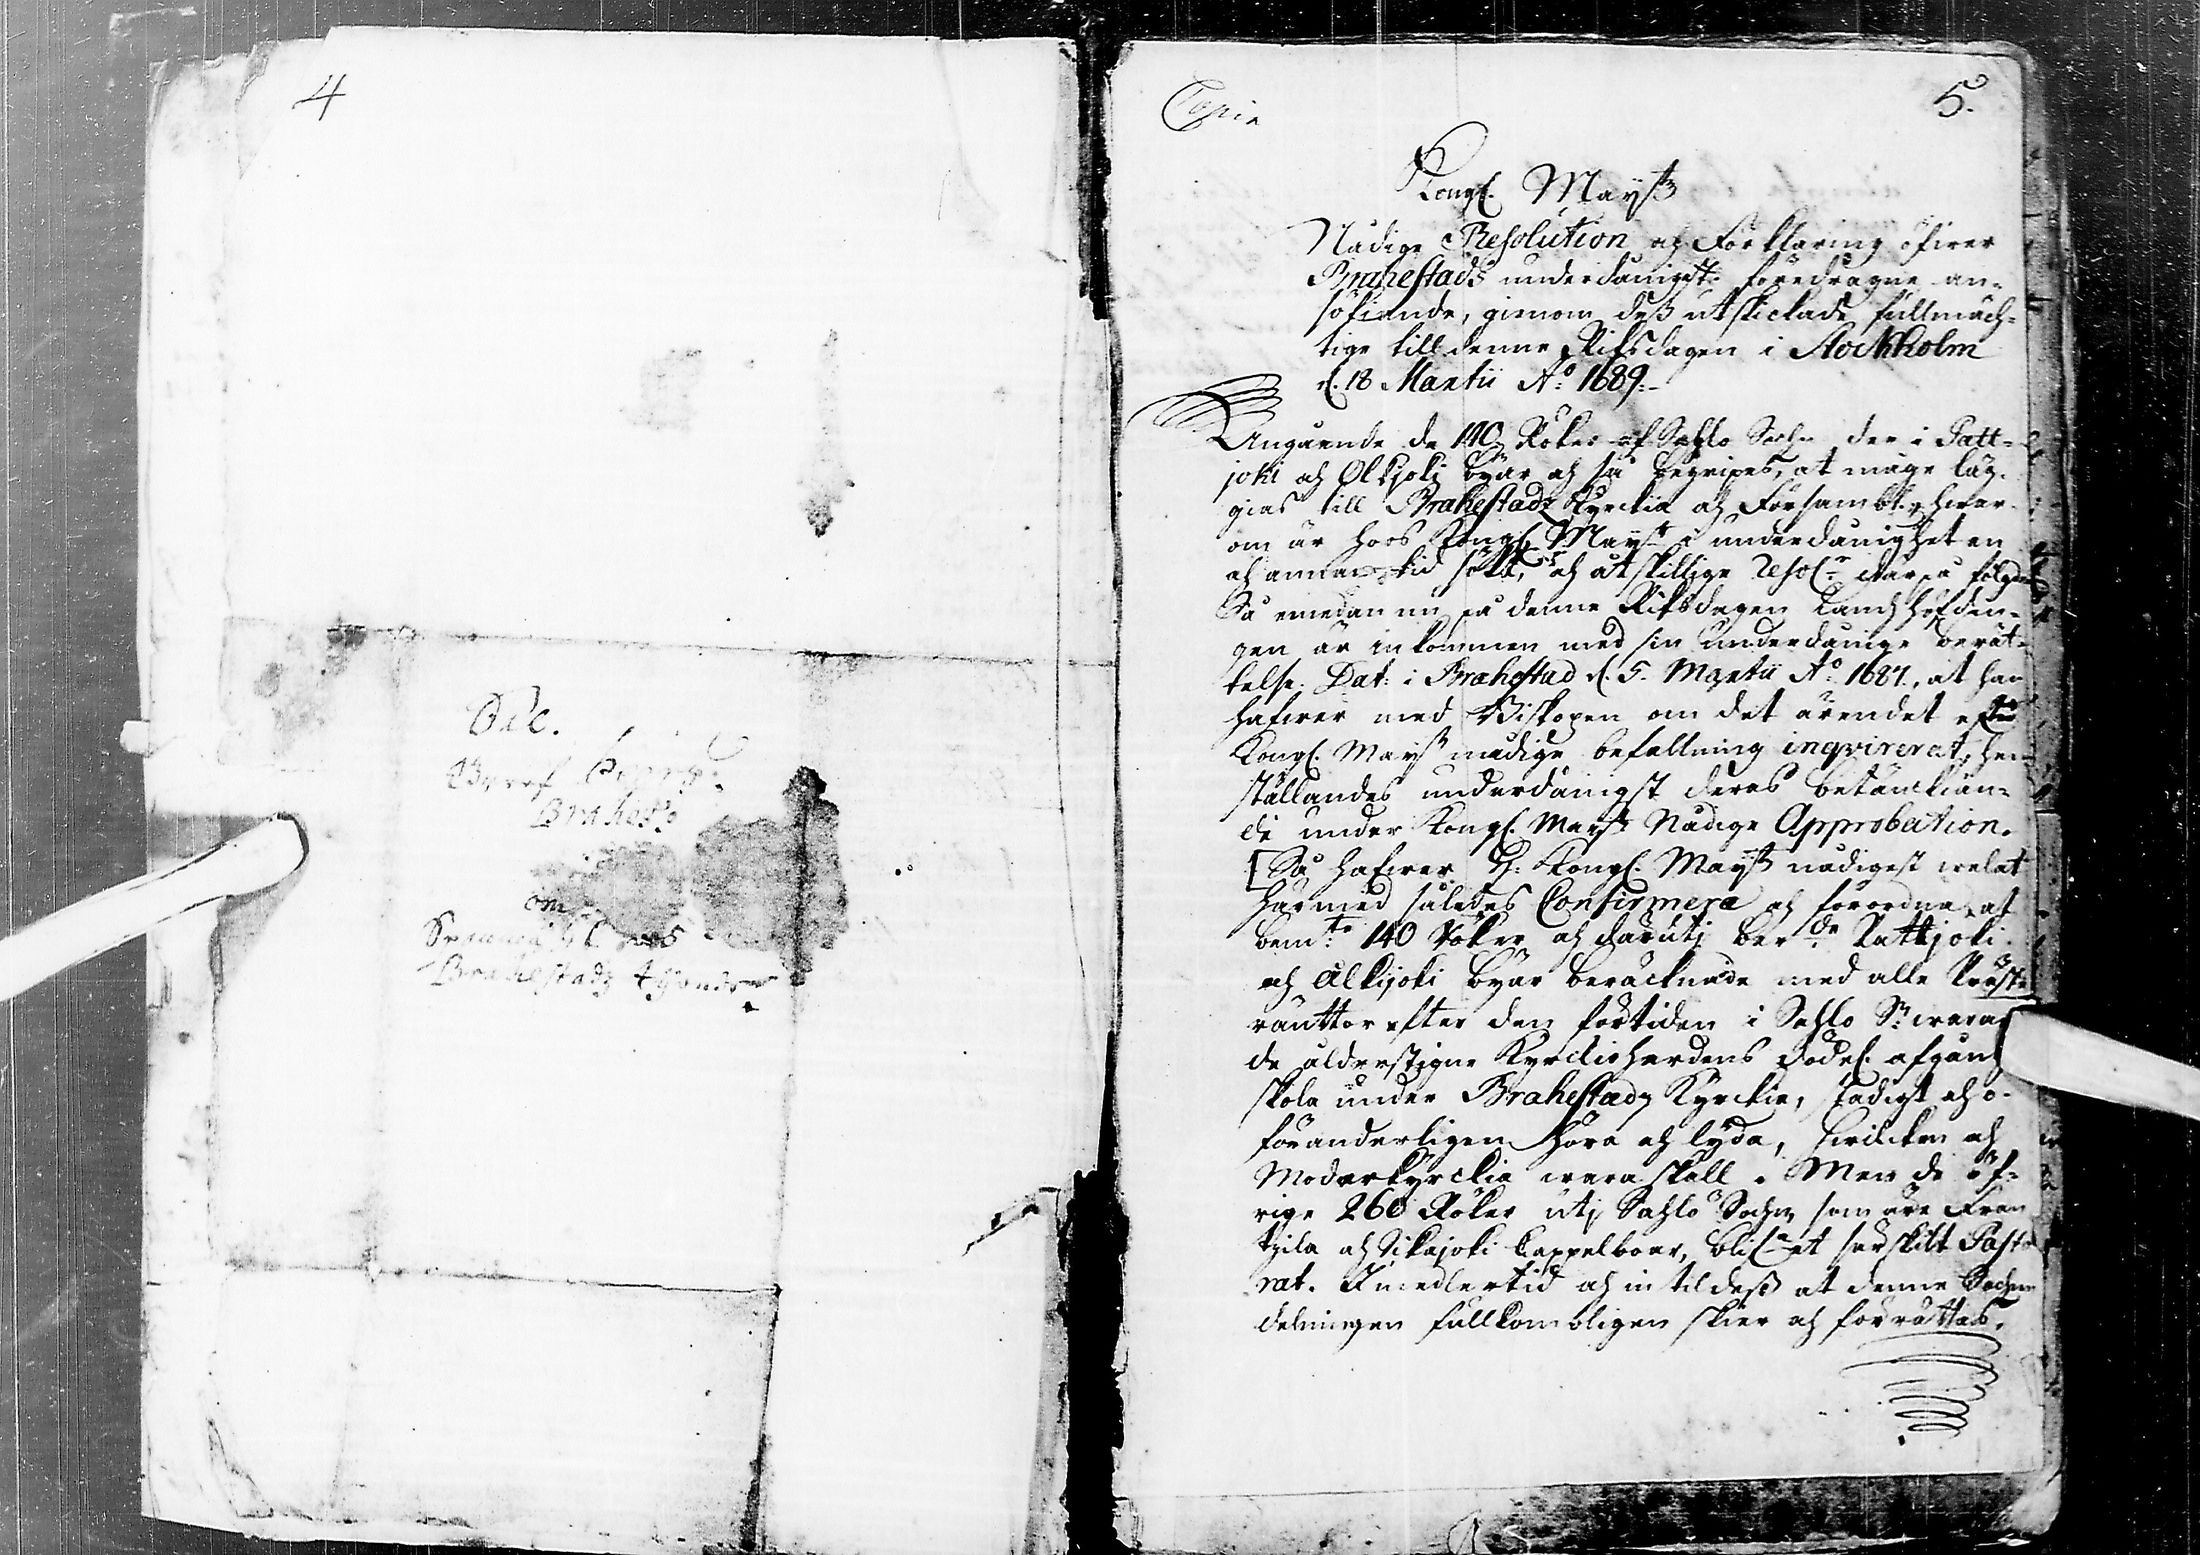 4
Brahest
om
Brahestadz
Copia
5.
Kongl. Mayßt
Nådige Resolution och Förklaring öfwer
Brahestads underdånigst föredragne an-
sökiande, genom deß utskickade fullmäch-
tige till denne Rikzdagen i Stockholm
d. 18 Martii A:o 1689.
Angående de 140 Röker af Sahlo Sochn, der i Patt-
joki och Olkijoki byar och så begripes, at måge läg-
gias till Brahestadz Kyrckia och Försambl., hwar-
om är hoos Kongl. Mayst i underdånighet en
och annan tid sökt, och åtskillige Resol:r därpå fölgde
Så emedan nu på denne Rikzdagen Landzhöfdin-
gen är inkommen med sin underdånige berät-
telse. Dat: i Brahestad d. 5. Martii A:o 1687, at han
hafwer med Biskopen om det ärendet efter
Kongl. Mayst nådige befallning inqvirerat, hem-
ställandes underdånigst deras betänckian-
de under Kongl. Mayst Nådige Approbation.
[Så hafwer H: Kongl. Mayßt nådigst welat
härmed således Confirmera och förordna, at
bem:te 140 Röker och därutj ber:de Pattjoki
och Olkijoki byar beräcknade med alle Präste
rättor efter den förtiden i Sahlo S:n warande
de ålderstigne Kyrckioherdens dödel. afgång
skola under Brahestadz Kyrckia, stadigt och o-
föranderligen höra och lyda, hwilcken och
Moderkyrckia wara skall. Men de öf-
rige 260 Röker utj Sahlo Sochn, som äre Fran
tzila och Sikajoki Cappelboer, blifwa et särskilt Pasto
rat. Imedlertid och in til deß at denne Sochne
delningen fullkombligen skier och förrättas,